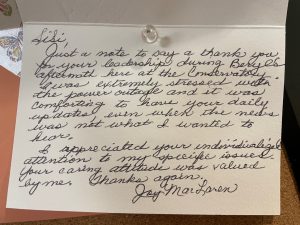 Lili,
Just a note to say a thank you
for your leadership during Beryl's
aftermath here at the Conservatory.
I was extremely stressed with
the power outage and it was
comforting to have your daily
updates even when the news
was not what I wanted to
hear.
I appreciated your individualized
attention to my specific issues.
Your caring attitude was valued
by me. Thanks again.
Joy MacLaren